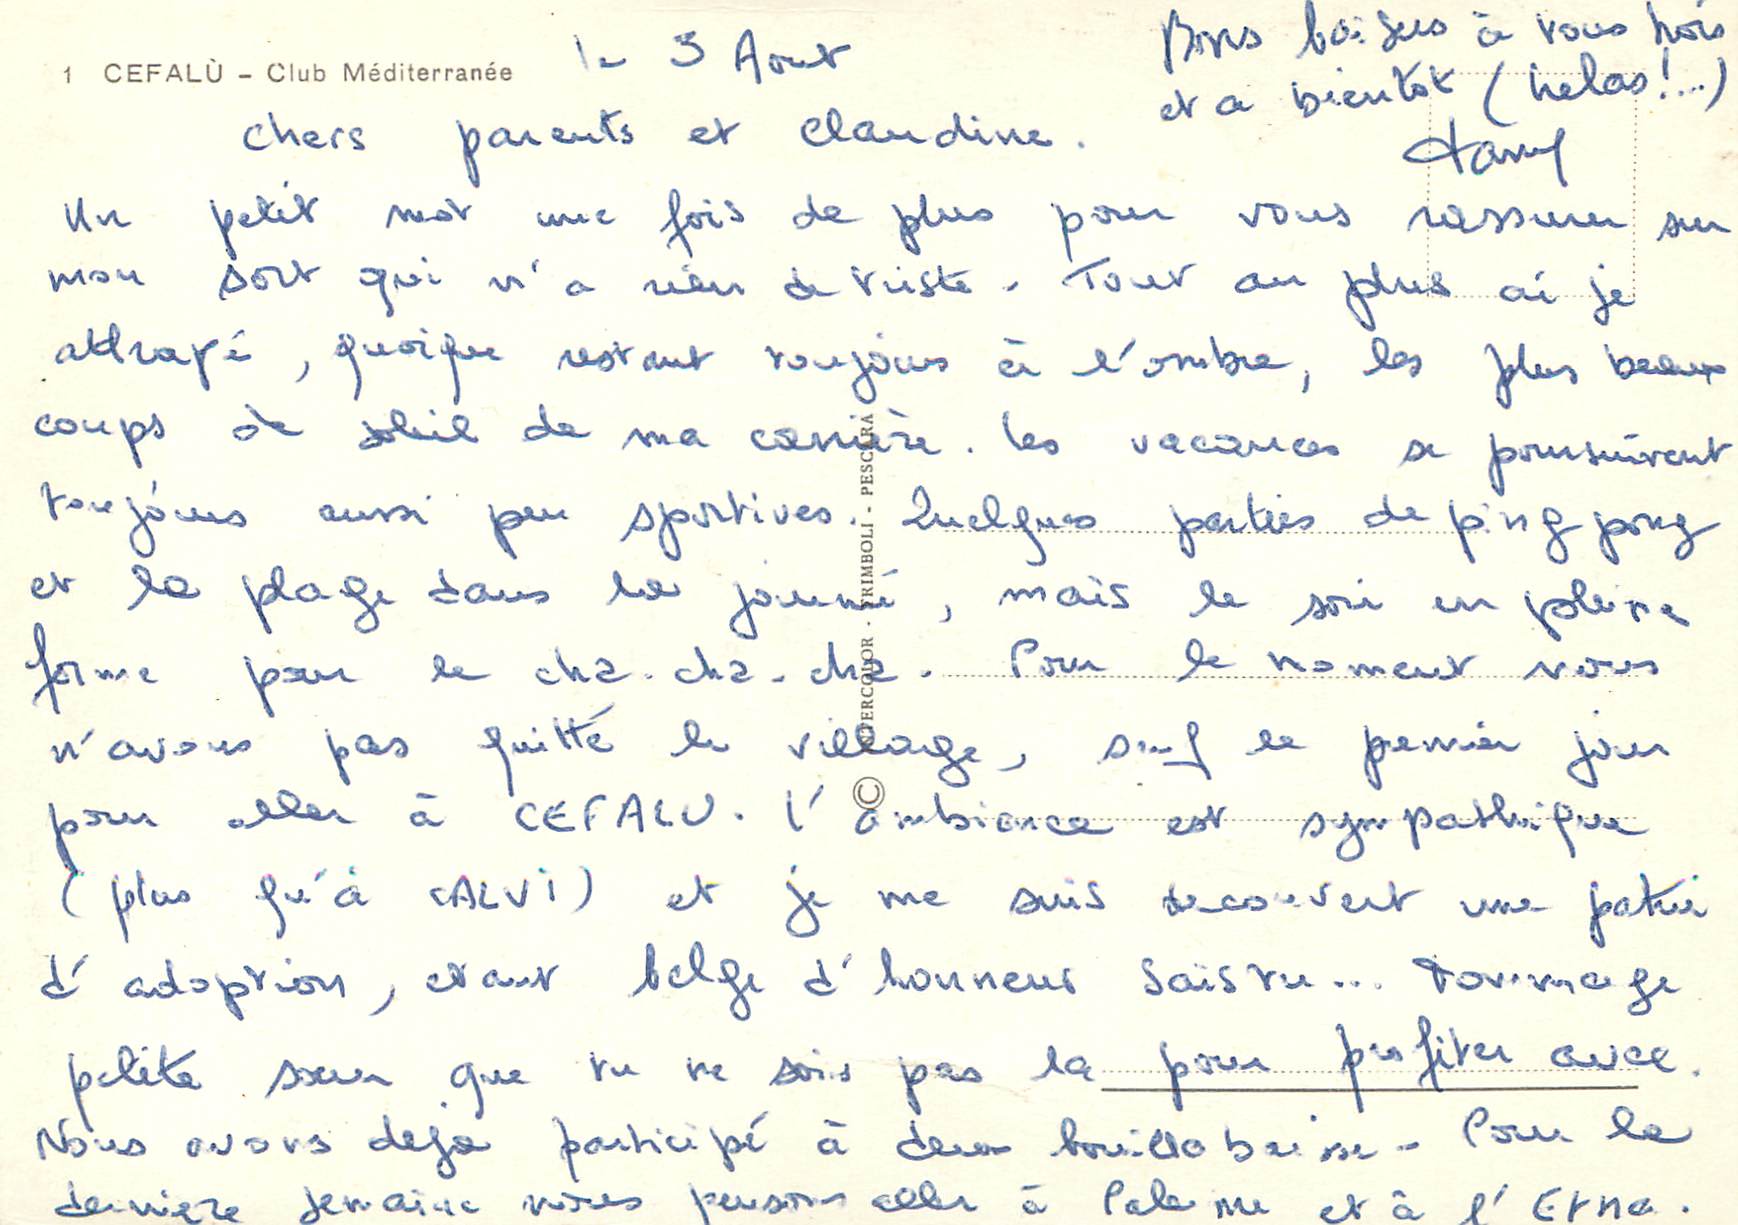 1 CEFALÙ - Club Méditerranée
le 3 Aout
chers parents et Claudine.
Un petit mot une fois de plus pour vous rassurer sur
mon sort qui n'a rien de triste. Tout au plus ai je
attrapé, quoique restant toujours à l'ombre, les plus beaux
coups de soleil de ma carrière. les vacances se poursuivent
toujours aussi peu sportives. Quelques parties de ping pong
et la plage dans la journé, mais le soir en pleine
forme pour le cha-cha-cha. Pour le moment nous
n'avons pas quitté le village, sauf le premier jour
pour aller à CEFALU. l'ambiance est sympathique
(plus qu'à CALVI) et je me suis decouvert une patrie
d'adoption, etant belge d'honneur sais tu... Dommage
petite sœur que tu ne sois pas la pour profiter avec.
Nous avons deja participé à deux bouillabaisse. Pour la
derniere semaine nous pensons aller à Palerme et à l'Etna.
Bons baisers à vous trois
et a bientot (helas!...)
INTERCOLOR - TRIMBOLI - PESCARA
©